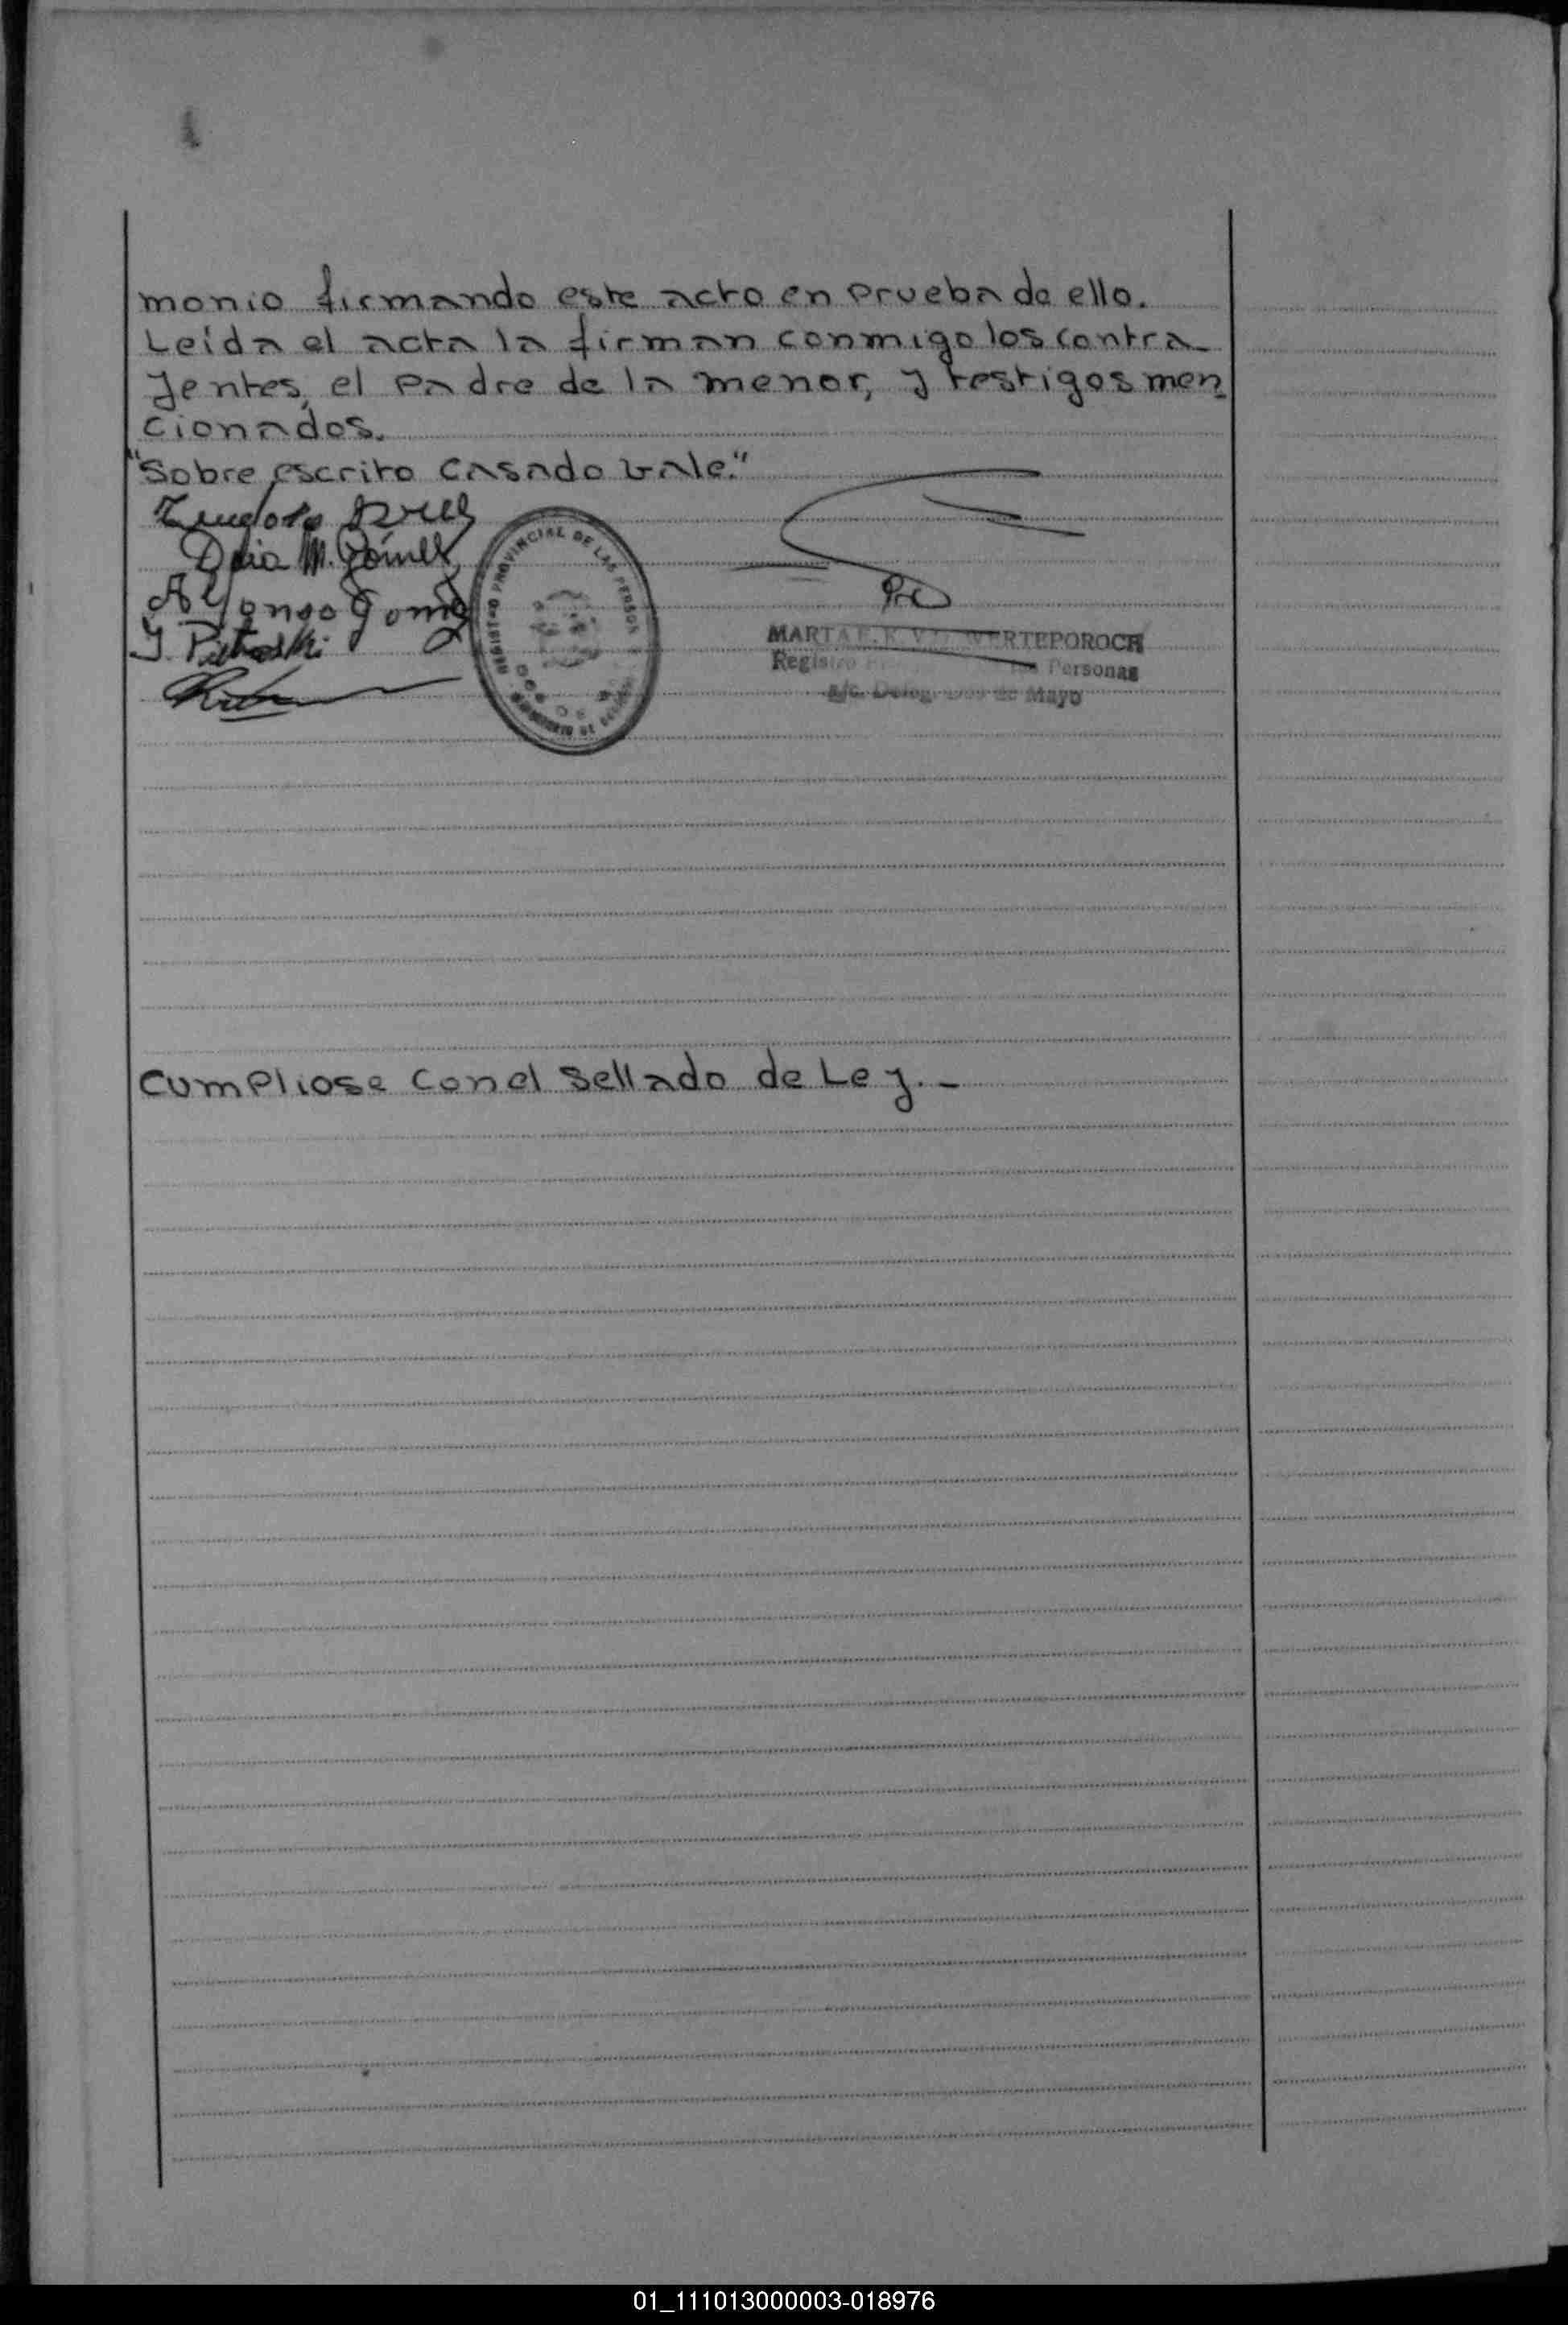 monio firmando este acto en prueba de ello.
Leída el acta la firman conmigo los contra-
yentes, el padre de la menor, y testigos men
cionados.
"Sobre escrito casado vale."
Delia M. Gómez
Alfonso Gomez
REGISTRO PROVINCIAL DE LAS PERSONAS
MARTA WERTEPOROCH
Registro Personas
a/c. Deleg. Dos de Mayo
Cumpliose con el Sellado de Ley.-
01_111013000003-018976